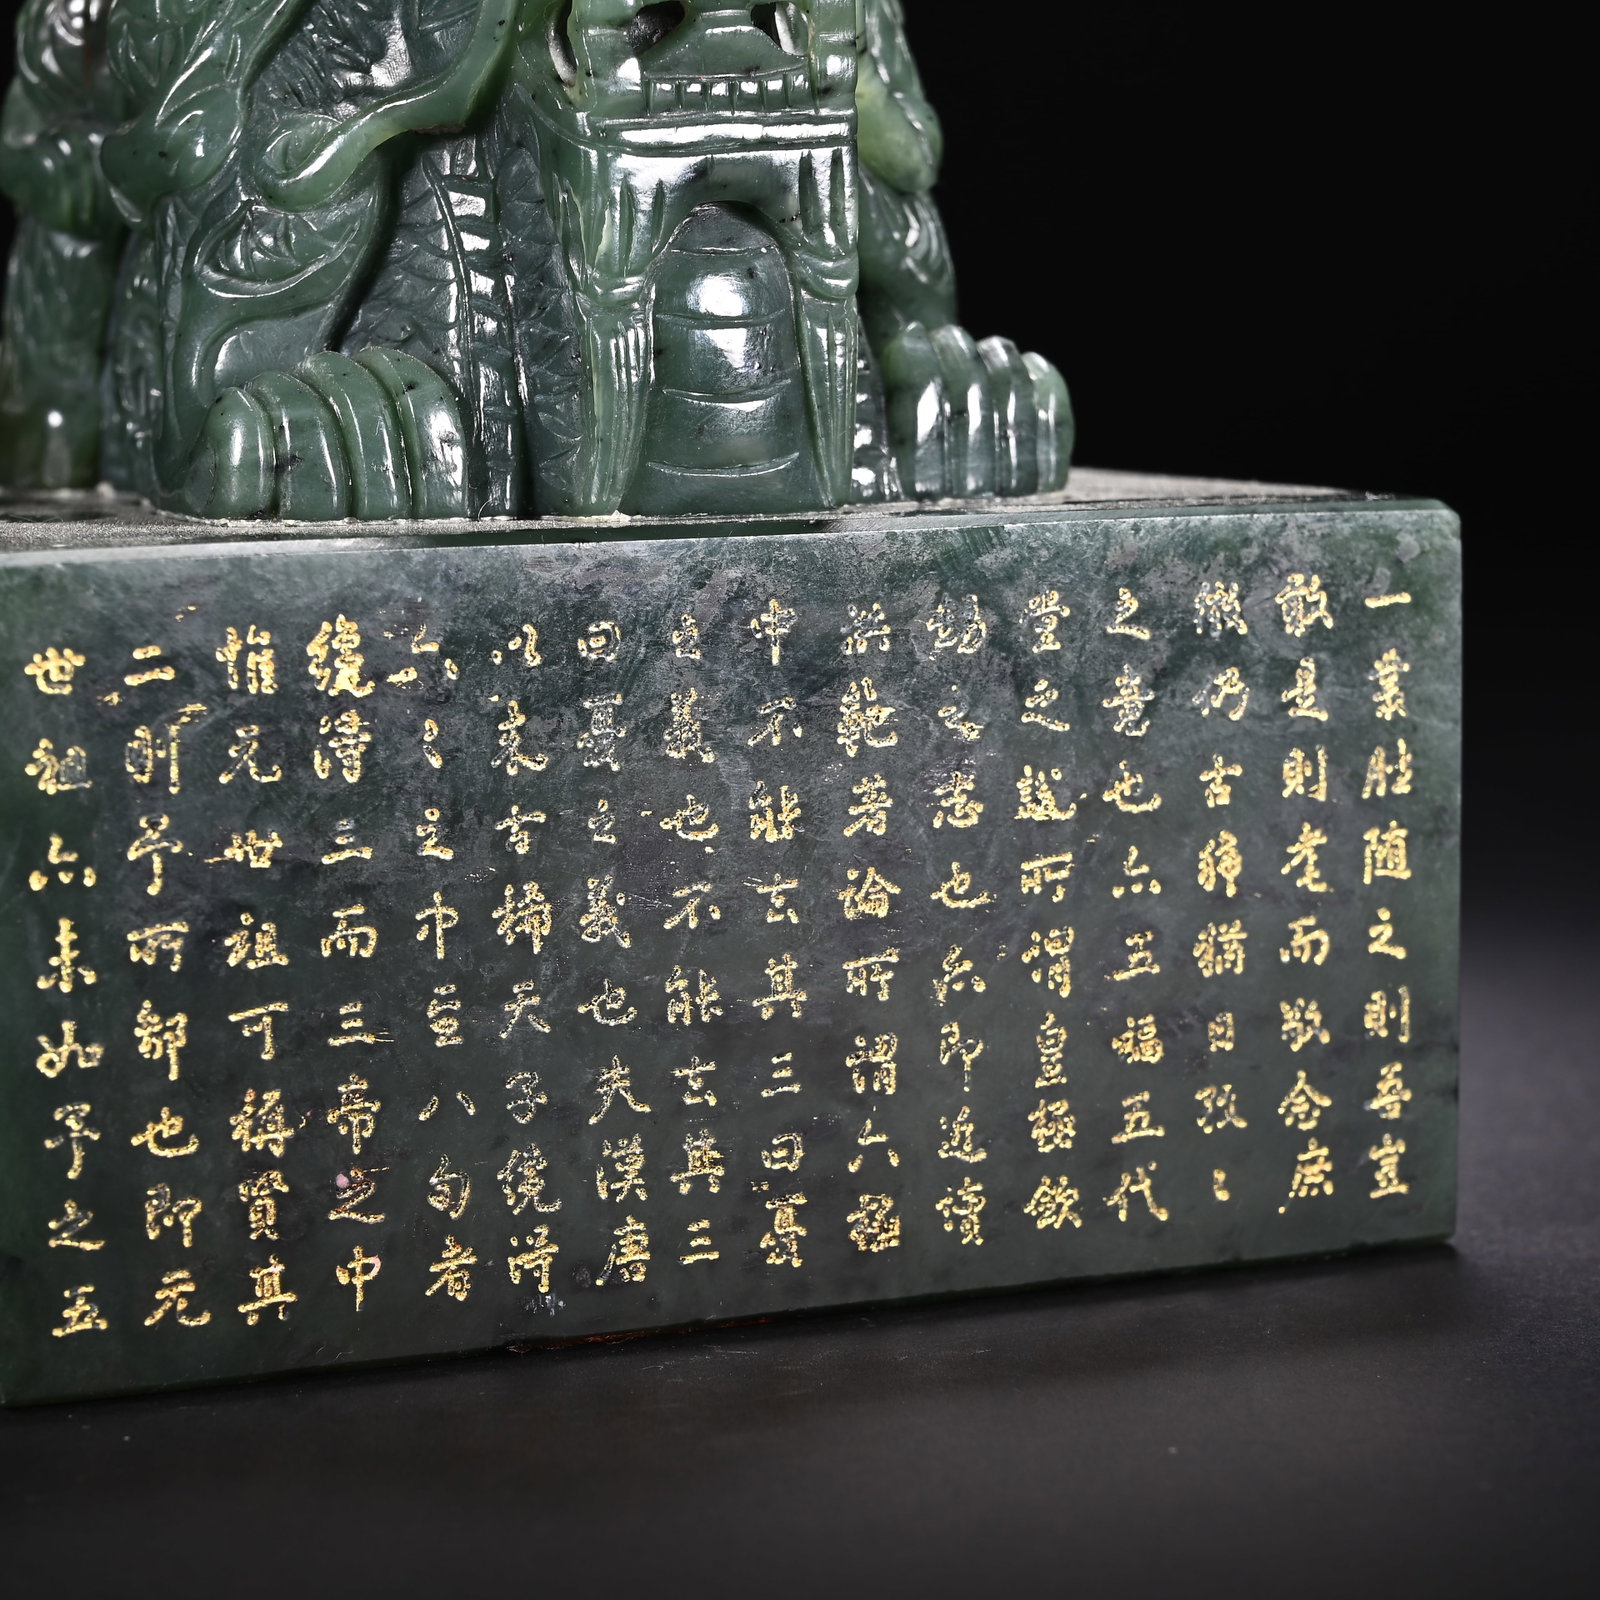 一業胜随之則吾豈
敢是則耄而敬念庶
徵乃古稀猶日孜〻
之意也六五福五代
堂之說所謂皇極斂
勅之志也六即近讀
洪範著論所謂六極
中不能去其三曰憂
之義也不能去其三
曰憂之義也夫漢唐
以来古稀天子纔得
六〻之中至八旬者
纔得三而三帝之中
惟元世祖可稱賢其
二則予所鄙也即元
世祖六未如予之五